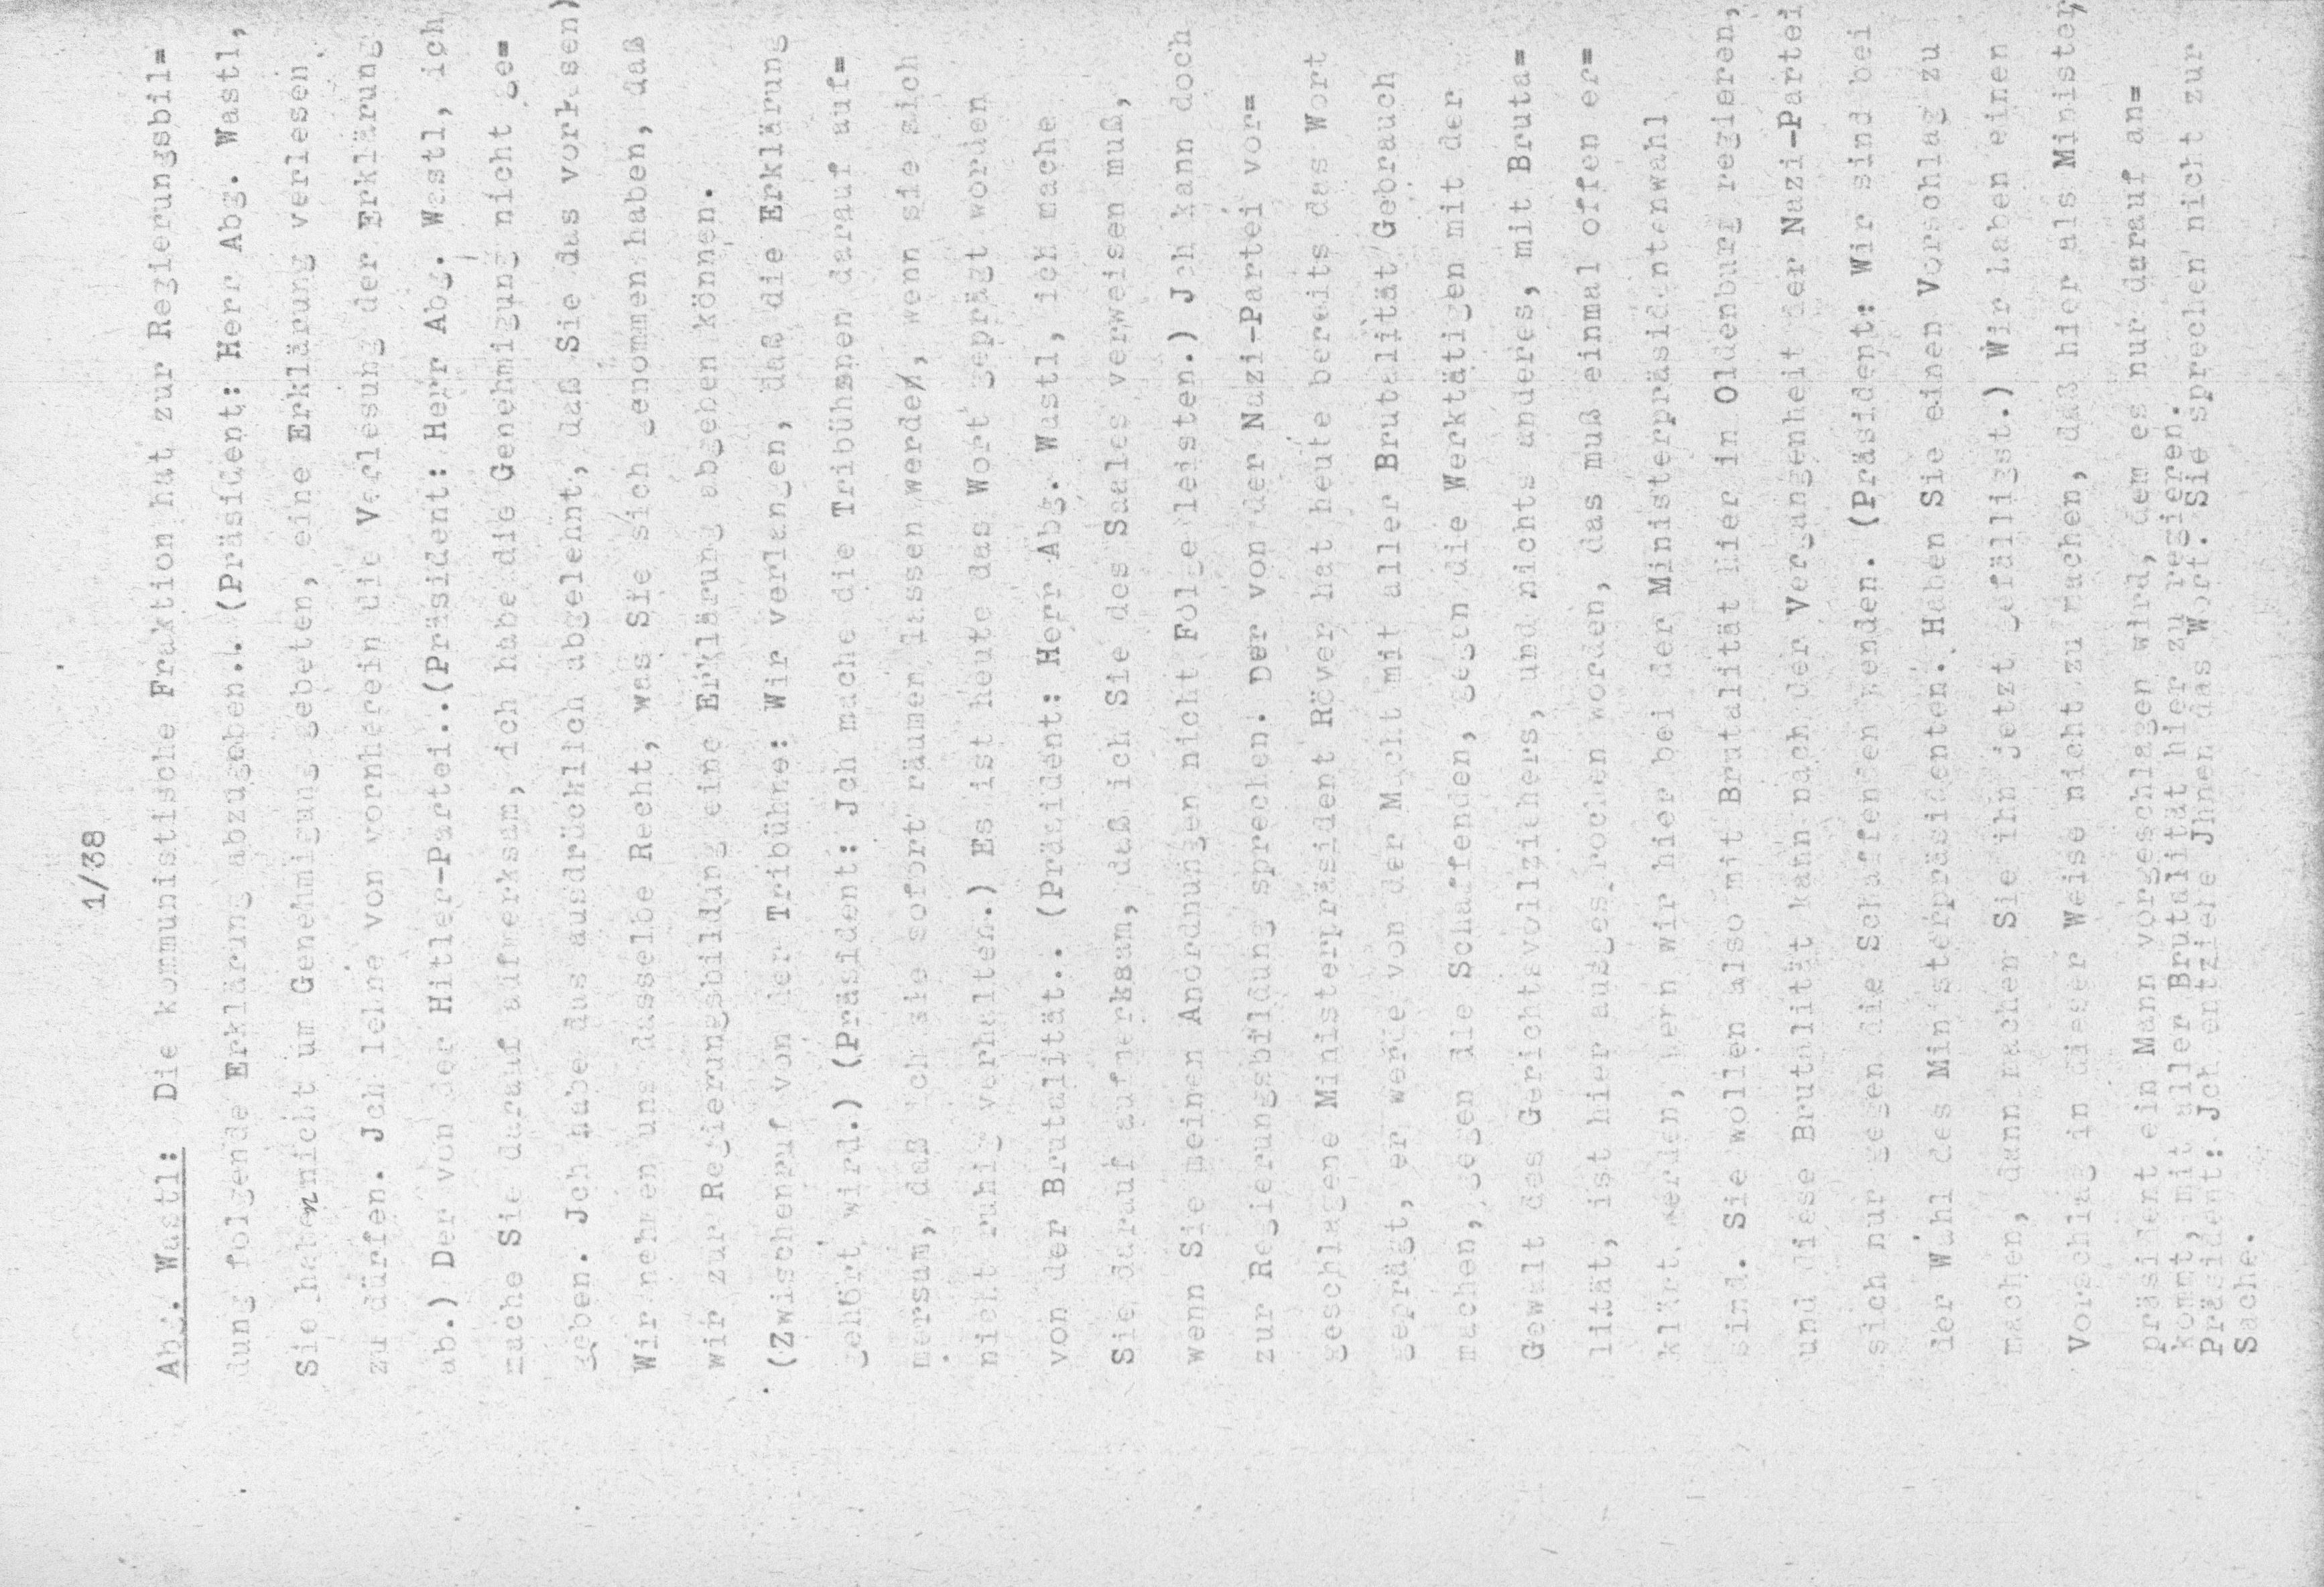 1/38
Abg. Wastl: Die kommunistische Fraktion hat zur Regierungsbil=
dung folgende Erklärung abzugeben.. (Präsident: Herr Abg. Wastl,
Sie haben nicht um Genehmigung gebeten, eine Erklärung verlesen
zu dürfen. Jch lehne von vornherein die Verlesung der Erklärung
ab.) Der von der Hitler-Partei..(Präsident: Herr Abg. Wastl, ich
mache Sie darauf aufmerksam, ich habe die Genehmigung nicht ge=
geben. Jch habe das ausdrücklich abgelehnt, daß Sie das vorlesen)
Wir nehmen uns dasselbe Recht, was Sie sich genommen haben, daß
wir zur Regierungsbildung eine Erklärung abgeben können.
(Zwischenruf von der Tribühne: Wir verlangen, daß die Erklärung
gehört wird.) (Präsident: Jch mache die Tribühnen darauf auf=
mersam, daß ich sie sofort räumen lassen werde, wenn sie sich
nicht ruhig verhalten.) Es ist heute das Wort geprägt worden
von der Brutalität.. (Präsident: Herr Abg. Wastl, ich mache
Sie darauf aufmerksam, daß ich Sie des Saales verweisen muß,
wenn Sie meinen Anordnungen nicht Folge leisten.) Jch kann doch
zur Regierungsbildung sprechen. Der von der Nazi-Partei vor=
geschlagene Ministerpräsident Röver hat heute bereits das Wort
geprägt, er werde von der Macht mit aller Brutalität Gebrauch
machen, gegen alle Schaffenden, gegen die Werktätigen mit der
Gewalt des Gerichtsvollziehers, und nichts anderes, mit Bruta=
lität, ist hier ausgesprochen worden, das muß einmal offen er=
klärt werden, wenn wir hier bei der Ministerpräsidentenwahl
sind. Sie wollen also mit Brutalität hier in Oldenburg regieren,
und diese Brutalität kann nach der Vergangenheit der Nazi-Partei
sich nur gegen die Schaffenden wenden. (Präsident: Wir sind bei
der Wahl des Ministerpräsidenten. Haben Sie einen Vorschlag zu
machen, dann machen Sie ihn jetzt gefälligst.) Wir haben einen
Vorschlag in dieser Weise nicht zu machen, daß hier als Minister,
präsident ein Mann vorgeschlagen wird, dem es nur darauf an=
kommt, mit aller Brutalität hier zu regieren.
Präsident: Jch entziehe Jhnen das Wort. Sie sprechen nicht zur
Sache.